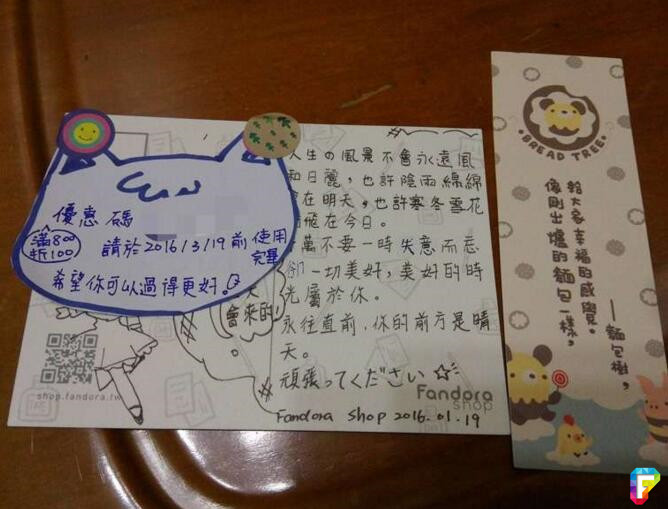 優惠碼
滿800
折100
請於2016/3/19前使用
完畢
希望你可以過得更好。
人生の風景不會永遠風
和日麗,也許陰雨綿綿
在明天,也許寒冬雪花
飛在今日。
萬不要一時失意而忘
卻一切美好,美好的時
光屬於你。
永往直前,你的前方是晴
天。
頑張ってください☆
Fandora Shop 2016.01.19
會來的!
shop.fandora.tw
Fandora
shop
BREAD TREE
給大家幸福的感覺。
像剛出爐的麵包一樣,
——麵包樹,
F